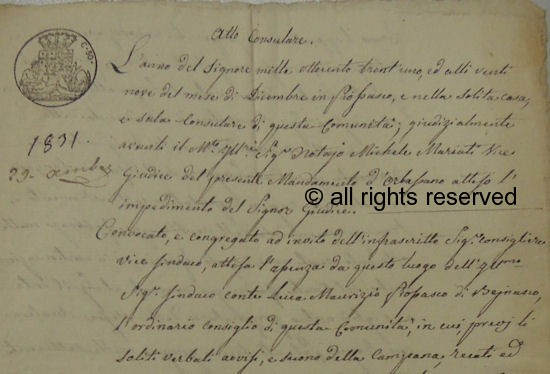 Atto Consulare.
C. 50.
L'anno del Signore mille ottocento trent'uno, ed alli venti
nove del mese di Dicembre in Piossasco, e nella solita casa,
e sala Consulare di questa Comunità; giudizialmente
1831.
avanti il M.to Ill.re Sig.r Notajo Michele Vice
29. Xmbre
Giudice del presente Mandamento d'Orbassano atteso l'
impedimento del Signor Giudice.
© all rights reserved
Convocato, e congregato ad invito dell'infrascritto Sig.r consigliere
vice sindaco, attesa l'assenza da questo luogo dell'Ill.mo
Sig.r sindaco conte Luca Maurizio Piossasco di Beinasco,
l'ordinario consiglio di questa Comunità, in cui previj li
soliti verbali avvisi, e suono della Campana, recati ed